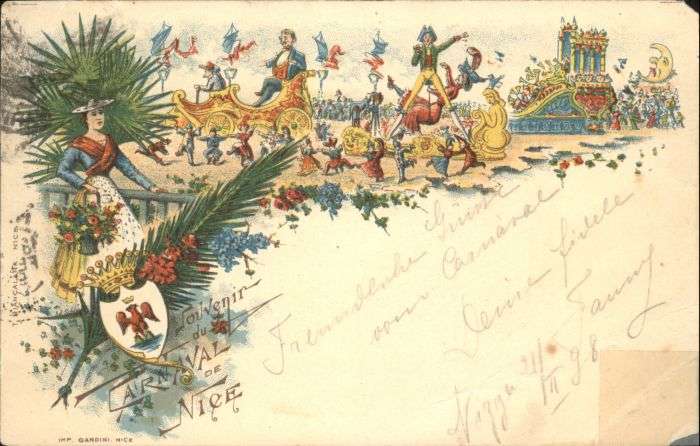 Souvenir
du
CARNAVAL
DE
NICE
Freundliche Grüsse
vom Carnaval
Deine fidele
Fanny.
Nizza 21/II 98
IMP. GANDINI. NICE